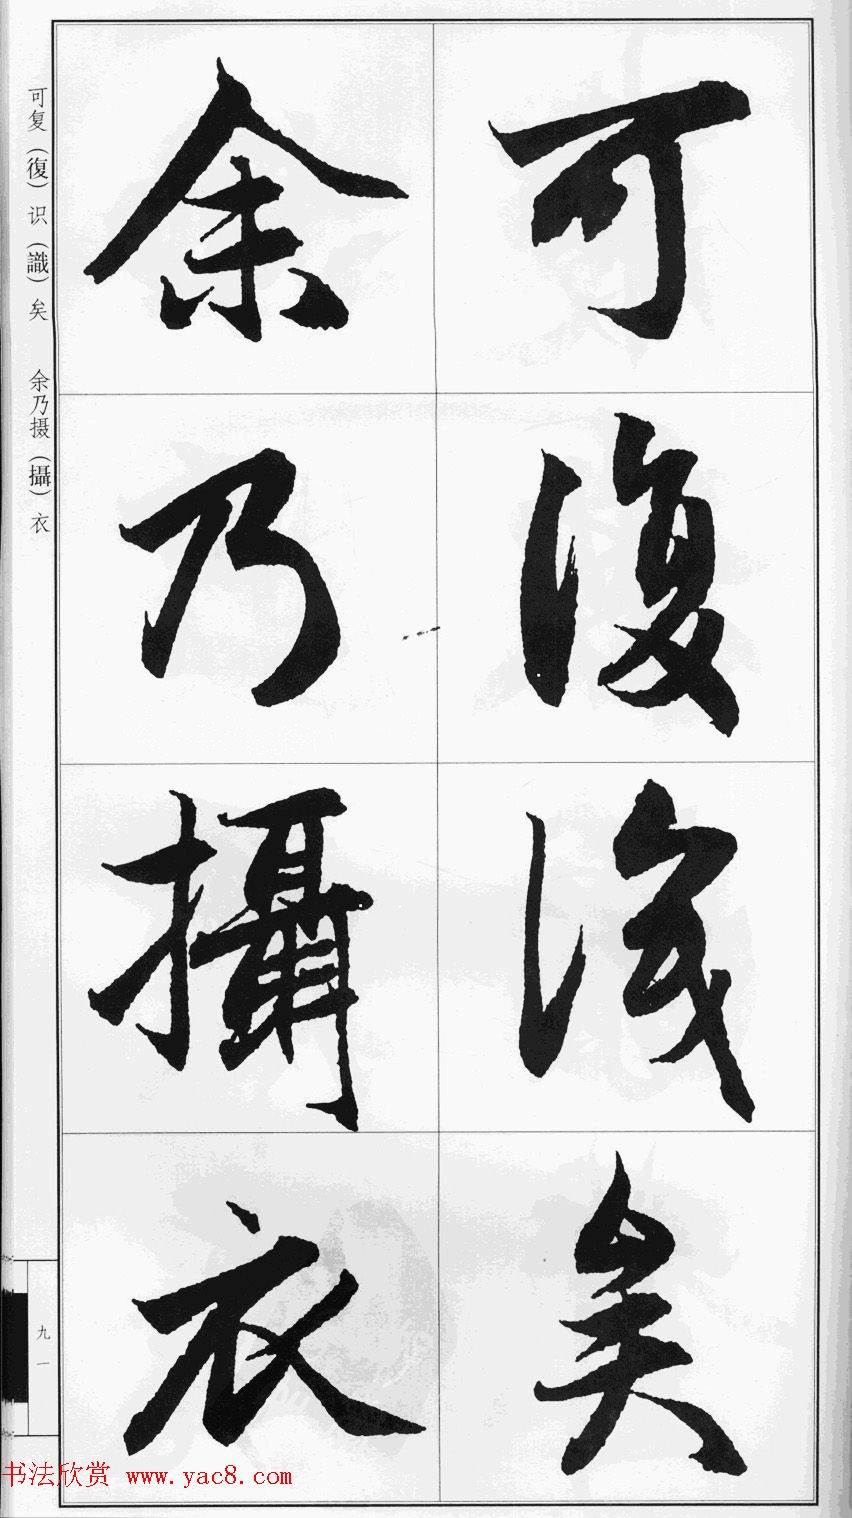 可復識矣
余乃攝衣
可复（復）识（識）矣　余乃摄（攝）衣
九一
书法欣赏 www.yac8.com